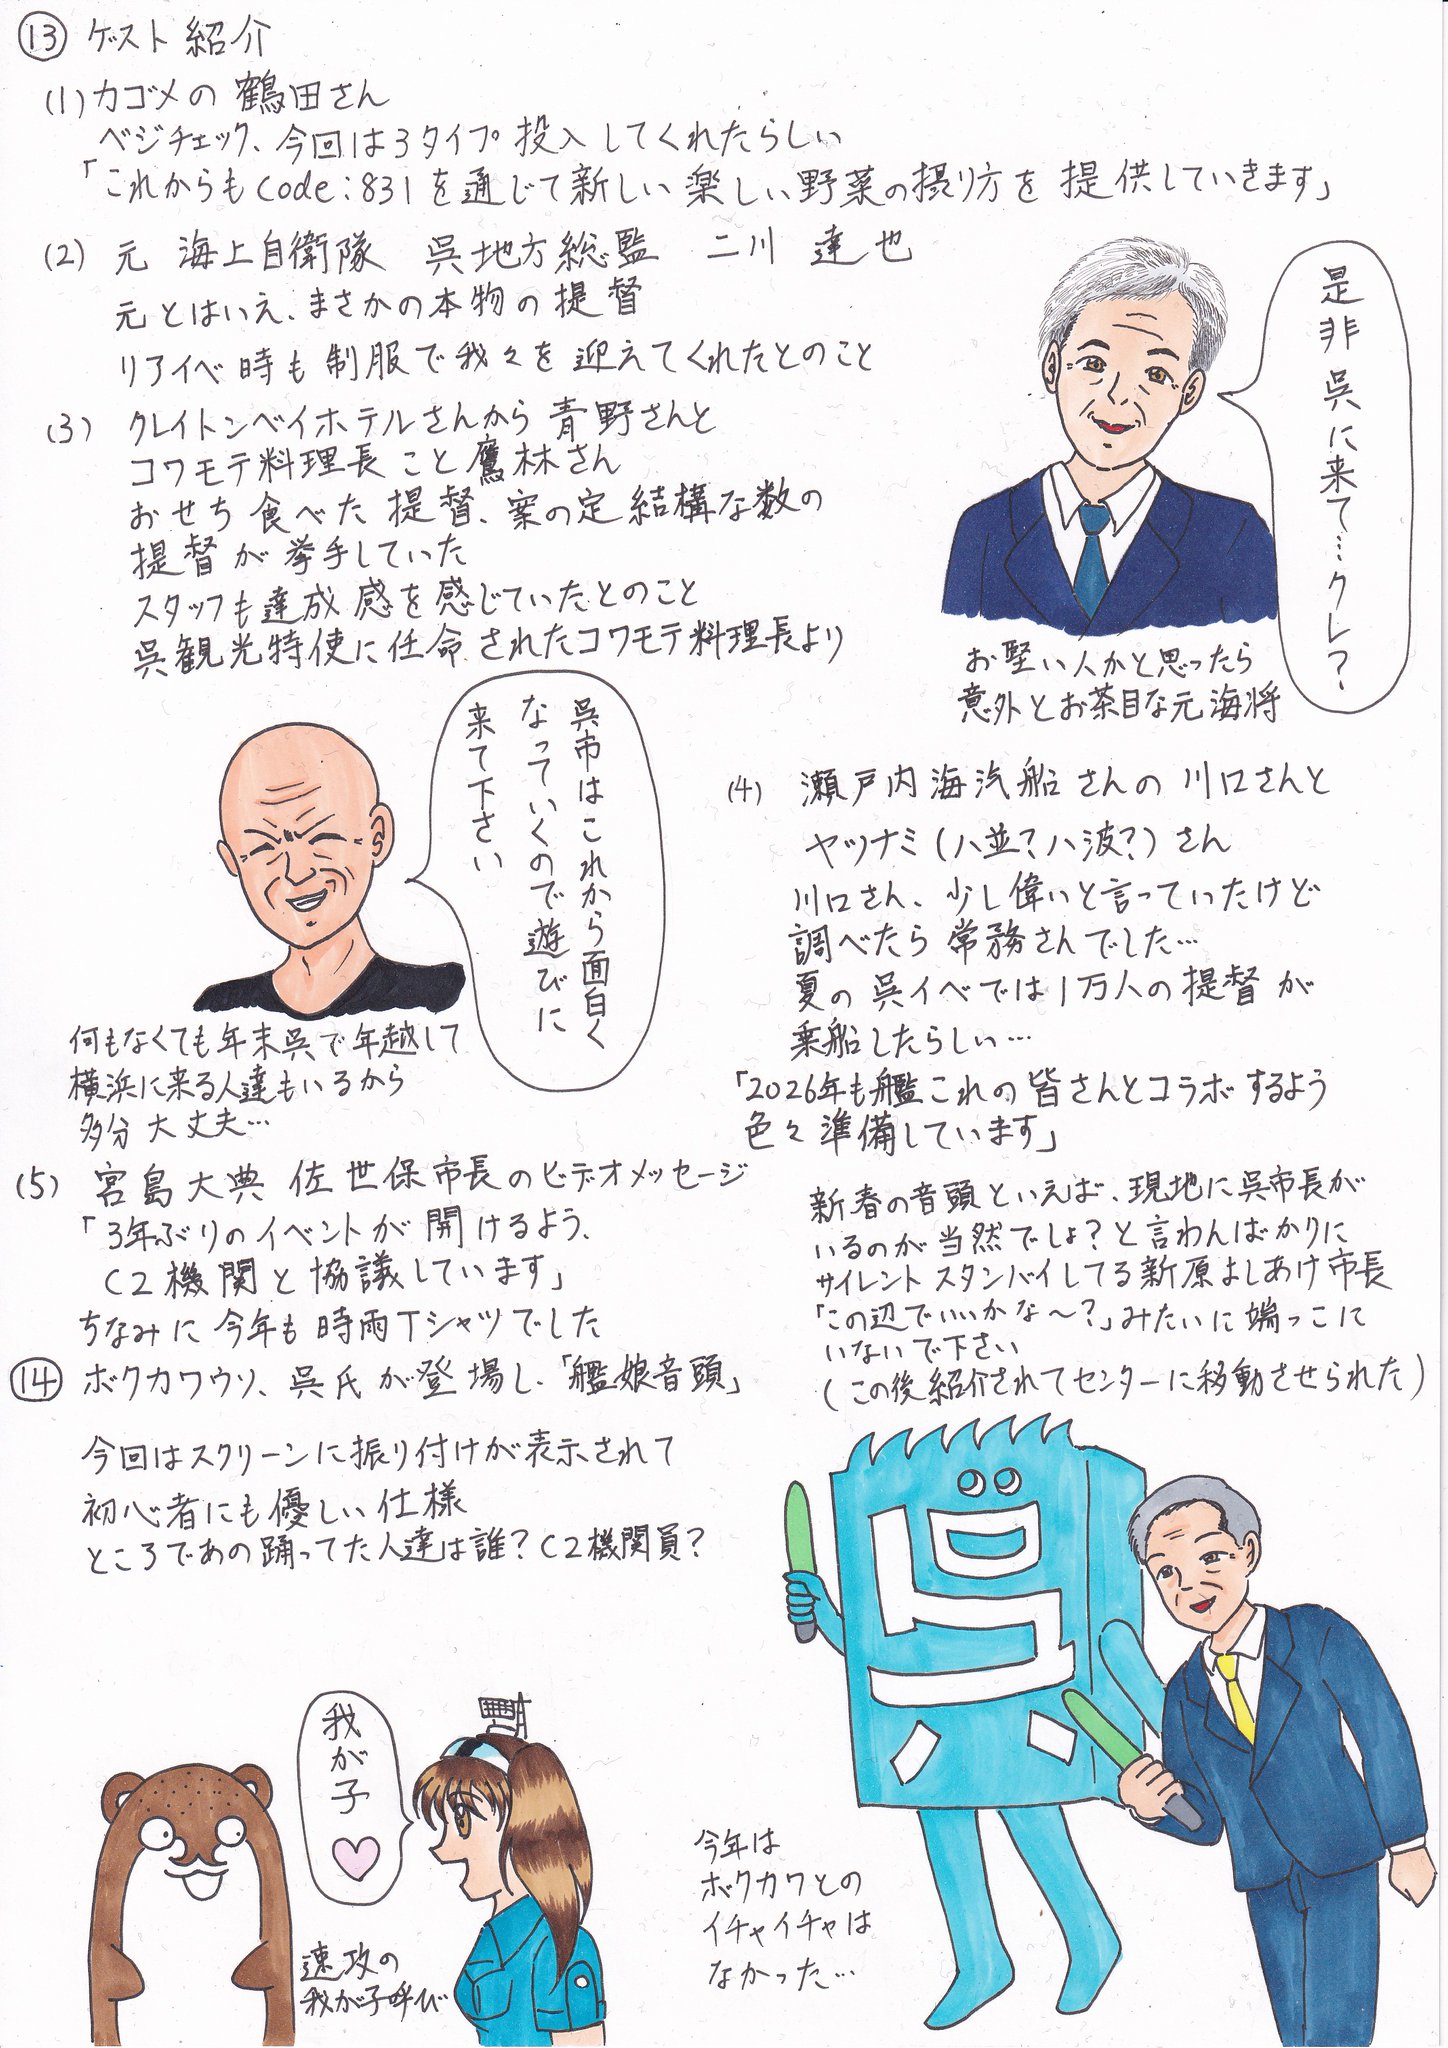 ⑬ ゲスト紹介
(1) カゴメの鶴田さん
ベジチェック、今回は3タイプ投入してくれたらしい
「これからもcode:831を通じて新しい楽しい野菜の摂り方を提供していきます」
(2) 元 海上自衛隊 呉地方総監 二川 達也
元とはいえ、まさかの本物の提督
リアイベ時も制服で我々を迎えてくれたとのこと
是非呉に来て…クレ?
お堅い人かと思ったら
意外とお茶目な元海将
(3) クレイトンベイホテルさんから青野さんと
コワモテ料理長こと鷹林さん
おせち食べた提督、案の定結構な数の
提督が挙手していた
スタッフも達成感を感じていたとのこと
呉観光特使に任命されたコワモテ料理長より
呉市はこれから面白く
なっていくので遊びに
来て下さい
何もなくても年末呉で年越して
横浜に来る人達もいるから
多分大丈夫…
(4) 瀬戸内海汽船さんの川口さんと
ヤツナミ(八並?八波?)さん
川口さん、少し偉いと言っていたけど
調べたら常務さんでした…
夏の呉イベでは1万人の提督が
乗船したらしい…
「2026年も艦これの皆さんとコラボするよう
色々準備しています」
(5) 宮島大典 佐世保市長のビデオメッセージ
「3年ぶりのイベントが開けるよう、
C2機関と協議しています」
ちなみに今年も時雨Tシャツでした
⑭ ボクカワウソ、呉氏が登場し、「艦娘音頭」
今回はスクリーンに振り付けが表示されて
初心者にも優しい仕様
ところであの踊ってた人達は誰?C2機関員?
新春の音頭といえば、現地に呉市長が
いるのが当然でしょ?と言わんばかりに
サイレントスタンバイしてる新原よしあけ市長
「この辺でいいかな〜?」みたいに端っこに
いないで下さい
(この後紹介されてセンターに移動させられた)
呉
我が子♡
速攻の
我が子呼び
今年は
ボクカワとの
イチャイチャは
なかった…